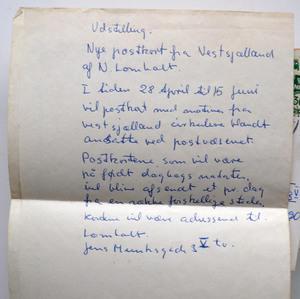 Udstilling.
Nye postkort fra Vestsjælland
af N. Lomholt.
I tiden 28 April til 15 juni
vil postkort med motiver fra
vestsjælland cirkulere blandt
ansatte ved postvæsenet.
Postkortene, som vil være
på født dagbogs notater,
vil blive afsendt et pr. dag
fra en række forskellige steder
kortene vil være adresseret til.
Lomholt.
Jens Munksgade 3 V tv.